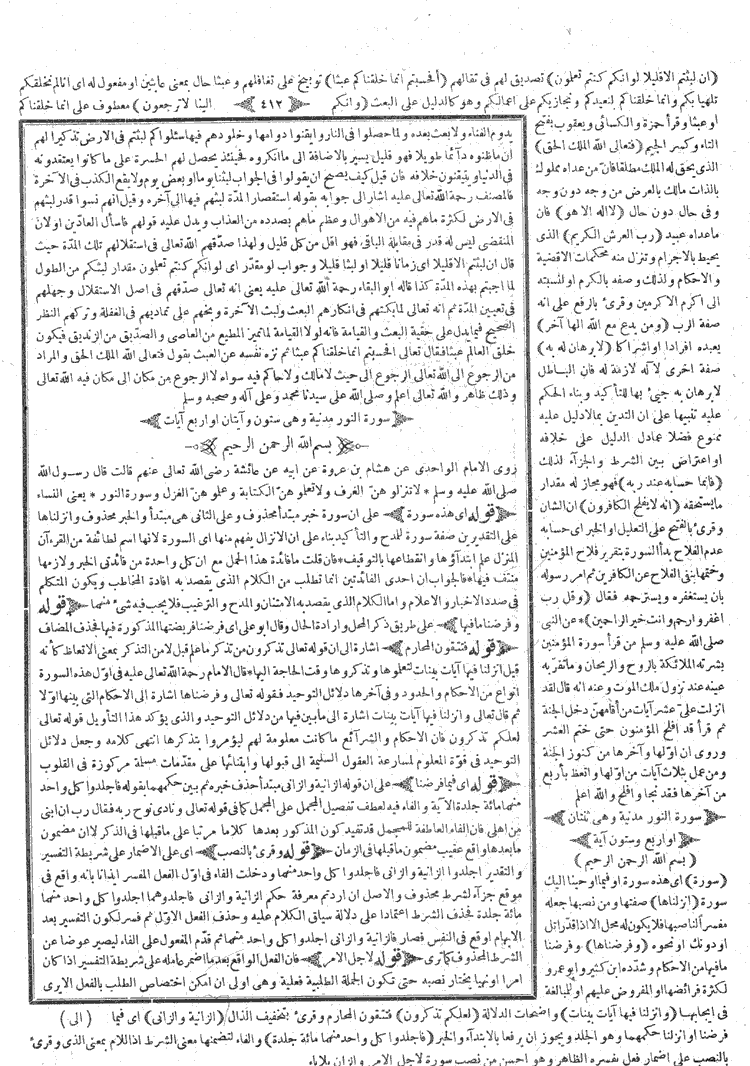 (ان لبثتم الاقليلا لو انكم كنتم تعلون) تصديق لهم فى تقالهم (أفحسبتم انما خلقناكم عبثا) توبيخ على تغافلهم وعبثا حال بمعنى عابثين او مفعول له اى انالم نخلقكم
تلهيا بكم وانما خلقناكم لنعيدكم ونجازيكم على اعمالكم وهو كالدليل على البعث (وانكم ﴿ ٤١٣ ﴾ الينا لاترجعون) معطوف على انما خلقناكم
او عبثا وقرأ حمزة والكسائى ويعقوب بفتح
التاء وكسر الجيم (فتعالى الله الملك الحق)
الذى يحق له الملك مطلقا فان من عداه مملوك
بالذات مالك بالعرض من وجه دون وجه
وفى حال دون حال (لااله الا هو) فان
ماعداه عبيد (رب العرش الكريم) الذى
يحيط بالاجرام وتنزل منه محكمات الاقضية
والاحكام ولذلك وصفه بالكرم او لنسبته
الى اكرم الاكرمين وقرئ بالرفع على انه
صفة الرب (ومن يدع مع الله الها آخر)
يعبده افرادا او اشراكا (لابرهان له به)
صفة اخرى لاله لازمة له فان الباطل
لابرهان به جئ بها للتأكيد وبناء الحكم
عليه تنبيها على ان التدين بمالادليل عليه
ممنوع فضلا عمادل الدليل على خلافه
او اعتراض بين الشرط والجزآء لذلك
(فانما حسابه عند ربه) فهو مجاز له مقدار
مايستحقه (انه لايفلح الكافرون) ان الشان
وقرئ بالفتح على التعليل او الخبر اى حسابه
عدم الفلاح بدأ السورة بتقرير فلاح المؤمنين
وختمها بنفى الفلاح عن الكافرين ثم امر رسوله
بان يستغفره ويسترحمه فقال (وقل رب
اغفر وارحم وانت خير الراحمين)* عن النبى
صلى الله عليه وسلم من قرأ سورة المؤمنين
بشرته الملائكة بالروح والريحان وماتقربه
عينه عند نزول ملك الموت وعنه انه قال لقد
انزلت على عشر آيات من أقامهن دخل الجنة
ثم قرأ قد افلح المؤمنون حتى ختم العشر
وروى ان اولها وآخرها من كنوز الجنة
ومن عمل بثلاث آيات من اولها واتعظ بأربع
من آخرها فقد نجا وافلح والله اعلم
﴿سورة النور مدنية وهى ثنتان﴾
﴿او اربع وستون آية﴾
(بسم الله الرحمن الرحيم)
(سورة) اى هذه سورة او فيما اوحينا اليك
سورة (انزلناها) صفتها ومن نصبها جعله
مفسرا لناصبها فلا يكون له محل الا اذا قدر اتل
او دونك او نحوه (وفرضناها) وفرضنا
مافيها من الاحكام وشدده ابن كثير وابو عمرو
لكثرة فرائضها او المفروض عليهم او للمبالغة
يدوم الفناء ولابعث بعده ولما حصلوا فى النار وايقنوا دوامها وخلودهم فيها سئلوا كم لبثتم فى الارض تذكيرا لهم
ان ماظنوه دآئما طويلا فهو قليل يسير بالاضافة الى ماانكروه فحينئذ يحصل لهم الحسرة على ماكانوا يعتقدونه
فى الدنيا ويتيقنون خلافه فان قيل كيف يصح ان يقولوا فى الجواب لبثنا يوما او بعض يوم ولايقع الكذب فى الآخرة
فالمصنف رحمة الله تعالى عليه اشار الى جوابه بقوله استقصارا لمدة لبثهم فيها الى آخره وقيل انهم نسوا قدر لبثهم
فى الارض لكثرة ماهم فيه من الاهوال وعظم ماهم بصدده من العذاب ويدل عليه قولهم فاسأل العادين اولان
المنقضى ليس له قدر فى مقابلة الباقى فهو اقل من كل قليل ولهذا صدقهم الله تعالى فى استقلالهم تلك المدة حيث
قال ان لبثتم الاقليلا اى زمانا قليلا او لبثا قليلا وجواب لو مقدر اى لو انكم كنتم تعلون مقدار لبثكم من الطول
لما اجبتم بهذه المدة كذا قاله ابو البقاء رحمة الله تعالى عليه يعنى انه تعالى صدقهم فى اصل الاستقلال وجهلهم
فى تعيين المدة ثم انه تعالى لما بكتهم فى انكارهم البعث ولبث الآخرة وبخهم على تماديهم فى الغفلة وتركهم النظر
الصحيح فيما يدل على حقية البعث والقيامة فانه لولا القيامة لما تميز المطيع من العاصى والصديق من الزنديق فيكون
خلق العالم عبثا فقال تعالى أفحسبتم انما خلقناكم عبثا ثم نزه نفسه عن العبث بقول فتعالى الله الملك الحق والمراد
من الرجوع الى الله تعالى الرجوع الى حيث لامالك ولاحاكم فيه سواه لاالرجوع من مكان الى مكان فيه الله تعالى
وذلك ظاهر والله تعالى اعلم وصلى الله على سيدنا محمد وعلى آله وصحبه وسلم
﴿سورة النور مدنية وهى ستون وآيتان او اربع آيات﴾
﴿بسم الله الرحمن الرحيم﴾
روى الامام الواحدى عن هشام بن عروة عن ابيه عن عائشة رضى الله تعالى عنهم قالت قال رسول الله
صلى الله عليه وسلم * لاتنزلوهن الغرف ولاتعلموهن الكتابة وعلموهن الغزل وسورة النور * يعنى النساء
﴿قوله اى هذه سورة﴾ على ان سورة خبر مبتدأ محذوف وعلى الثانى هى مبتدأ والخبر محذوف وانزلناها
على التقديرين صفة سورة للمدح والتأكيد بناء على ان الانزال يفهم منها اى السورة لانها اسم لطائفة من القرءآن
المنزل علم ابتدآؤها وانقطاعها بالتوقيف * فان قلت مافائدة هذا الحمل مع ان كل واحدة من فائدتى الخبر ولازمها
منتف فيها * فالجواب ان احدى الفائدتين انما تطلب من الكلام الذى يقصد به افادة المخاطب ويكون المتكلم
فى صدد الاخبار والاعلام واما الكلام الذى يقصد به الامتنان والمدح والترغيب فلا يجب فيه شئ منهما ﴿قوله
وفرضنا مافيها﴾ على طريق ذكر المحل وارادة الحال وقال ابو على اى فرضنا فريضتها المذكورة فيها فحذف المضاف
﴿قوله فتتقون المحارم﴾ اشارة الى ان قوله تعالى تذكرون من تذكر ماعلم قبل لامن التذكر بمعنى الاتعاظ كأنه
قيل انزلنا فيها آيات بينات لتعلموها وتذكروها وقت الحاجة اليها * قال الامام رحمة الله تعالى عليه فى اول هذه السورة
انواع من الاحكام والحدود وفى آخرها دلائل التوحيد فقوله تعالى وفرضناها اشارة الى الاحكام التى بينها اولا
ثم قال تعالى وانزلنا فيها آيات بينات اشارة الى مابين فيها من دلائل التوحيد والذى يؤكد هذا التأويل قوله تعالى
لعلكم تذكرون فان الاحكام والشرآئع ماكانت معلومة لهم ليؤمروا بتذكرها انتهى كلامه وجعل دلائل
التوحيد فى قوة المعلوم لمسارعة العقول السليمة الى قبولها وابتنائها على مقدمات مسلمة مركوزة فى القلوب
﴿قوله اى فيما فرضنا﴾ على ان قوله الزانية والزانى مبتدأ حذف خبره ثم بين حكمهما بقوله فاجلدوا كل واحد
منهما مائة جلدة الآية والفاء فيه لعطف تفصيل المجمل على المجمل كما فى قوله تعالى ونادى نوح ربه فقال رب ان ابنى
من اهلى فان الفاء العاطفة للمجمل قد تفيد كون المذكور بعدها كلاما مرتبا على ماقبلها فى الذكر لاان مضمون
مابعدها واقع عقيب مضمون ماقبلها فى الزمان ﴿قوله وقرئ بالنصب﴾ اى على الاضمار على شريطة التفسير
والتقدير اجلدوا الزانية والزانى فاجلدوا كل واحد منهما ودخلت الفاء فى اول الفعل المفسر ايذانا بانه واقع فى
موقع جزآء لشرط محذوف والاصل ان اردتم معرفة حكم الزانية والزانى فاجلدوهما اجلدوا كل واحد منهما
مائة جلدة فحذف الشرط اعتمادا على دلالة سياق الكلام عليه وحذف الفعل الاول ثم فسر لكون التفسير بعد
الابهام اوقع فى النفس فصار فالزانية والزانى اجلدوا كل واحد منهما ثم قدم المفعول على الفاء ليصير عوضا عن
الشرط المحذوف كما ترى ﴿قوله لاجل الامر﴾ فان الفعل الواقع بعد مااضمر عامله على شريطة التفسير اذا كان
امرا او نهيا يختار نصبه حتى تكون الجملة الطلبية فعلية وهى اولى ان امكن اختصاص الطلب بالفعل الايرى
فى ايجابها (وانزلنا فيها آيات بينات) واضحات الدلالة (لعلكم تذكرون) فتتقون المحارم وقرئ بتخفيف الذال (الزانية والزانى) اى فيما (الى)
فرضنا او انزلنا حكمهما وهو الجلد ويجوز ان يرفعا بالابتدآء والخبر (فاجلدوا كل واحد منهما مائة جلدة) والفاء لتضمنها معنى الشرط اذ اللام بمعنى الذى وقرئ
بالنصب على اضمار فعل يفسره الظاهر وهو احسن من نصب سورة لاجل الامر والزان بلاياء